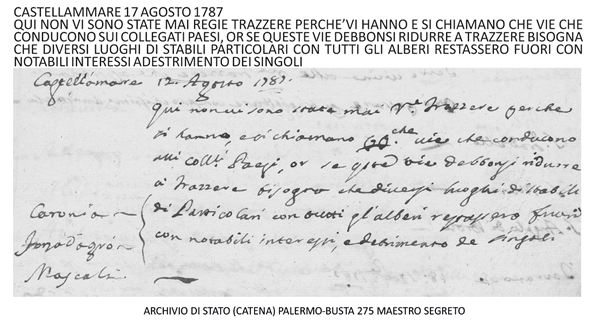 CASTELLAMMARE 17 AGOSTO 1787
QUI NON VI SONO STATE MAI REGIE TRAZZERE PERCHE'VI HANNO E SI CHIAMANO CHE VIE CHE
CONDUCONO SUI COLLEGATI PAESI, OR SE QUESTE VIE DEBBONSI RIDURRE A TRAZZERE BISOGNA
CHE DIVERSI LUOGHI DI STABILI PARTICOLARI CON TUTTI GLI ALBERI RESTASSERO FUORI CON
NOTABILI INTERESSI ADESTRIMENTO DEI SINGOLI
Castellamare 12. Agosto 1787.
Qui non vi sono state mai Re. Trazzere perche
vi hanno, e si chiamano che vie che conducono
alli colli. Paesi, or se queste vie debbonsi ridurre
a Trazzere bisogna che diversi luoghi di stabili
Caronia di Particolari con tutti gl'alberi restassero fuori
con notabili interessi, e detrimento de singoli
Mascali
ARCHIVIO DI STATO (CATENA) PALERMO-BUSTA 275 MAESTRO SEGRETO